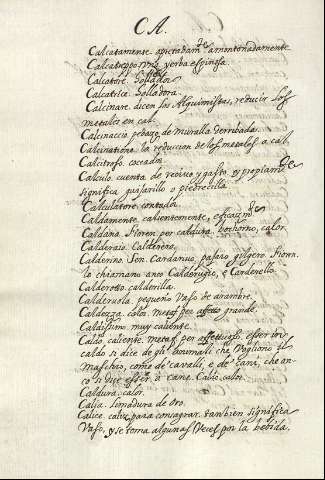 CA.
Calcatamente. apretadam.te amontonadamente
Calcatreppo una yerba espinosa.
Calcatore. Hollador
Calcatrice. Holladora.
Calcinare. dicen los Alquimistas, reducir los
metales en cal.
Calcinaccio pedazo de muralla derribada.
Calcinatione la reduccion de los metales a cal.
Calcitroso. coceador.
Calculo. cuenta de recivo y gasto. y propiam.te
significa guijarillo o piedrecilla.
Calculatore. contador.
Caldamente. calientemente, eficazm.te
Caldana. Fioren. per caldura. bochorno, calor.
Calderaio. Calderero.
Calderino. Sen. Cardanuo, pajaro gilgero. Fioren.
lo chiamano anco Calderugio, e Carderello.
Calderotto. calderilla.
Calderuola. pequeño Vaso de arambre.
Caldezza. calor. metaf. per affetto grande.
Caldissimo. muy caliente.
Caldo. caliente. metaf. per affettuoso. esser in
caldo si dice de gli animali che Vogliono il
maschio, come de cavalli, e de cani, che an-
co si dice esser a cane. Caldo. calor.
Caldura. calor.
Calia. limadura de oro.
Calice. caliz para consagrar. tambien significa
Vaso, y se toma algunas Veces por la bebida.